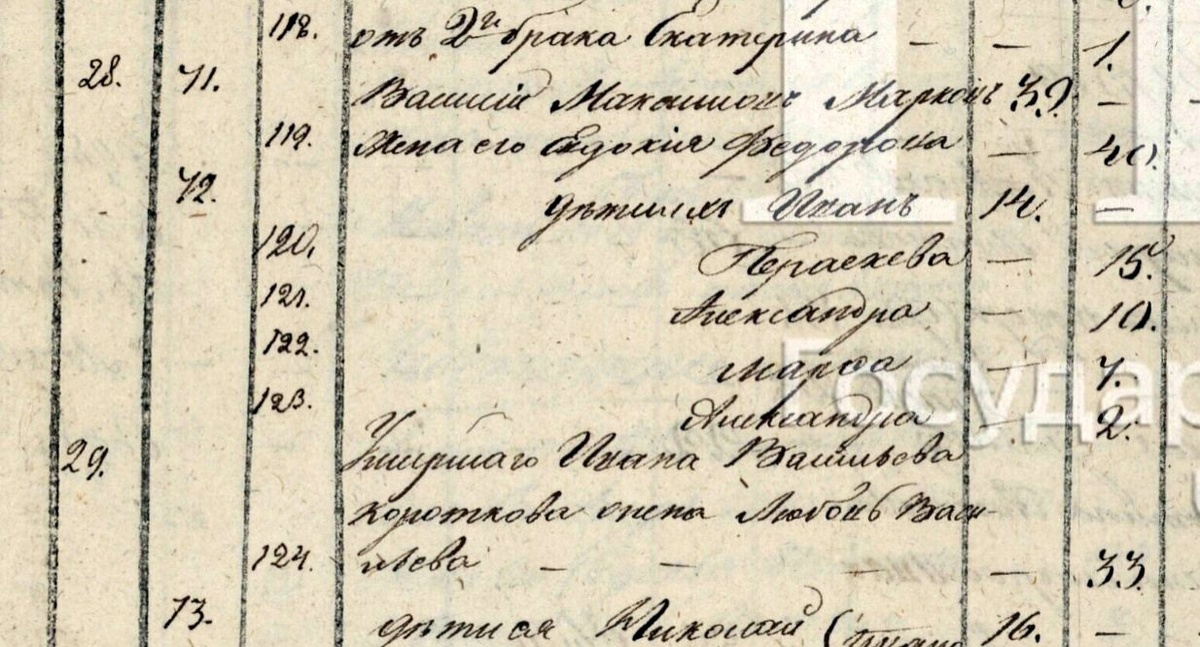 118. отъ 2й брака Екатерина — — 1.
28. 71. Василій Максимовъ Марковъ 39. —
119. Жена его Евдокія Федорова — 40.
72. дѣти их Иванъ 14. —
120. Параскева — 15.
121. Александра — 10.
122. Марфа — 7.
123. Александра — 2.
29. Умершаго Ивана Васильева
Короткова жена Любовь Васи-
124. льева — — — — 33.
73. Николай 16. —
Государ